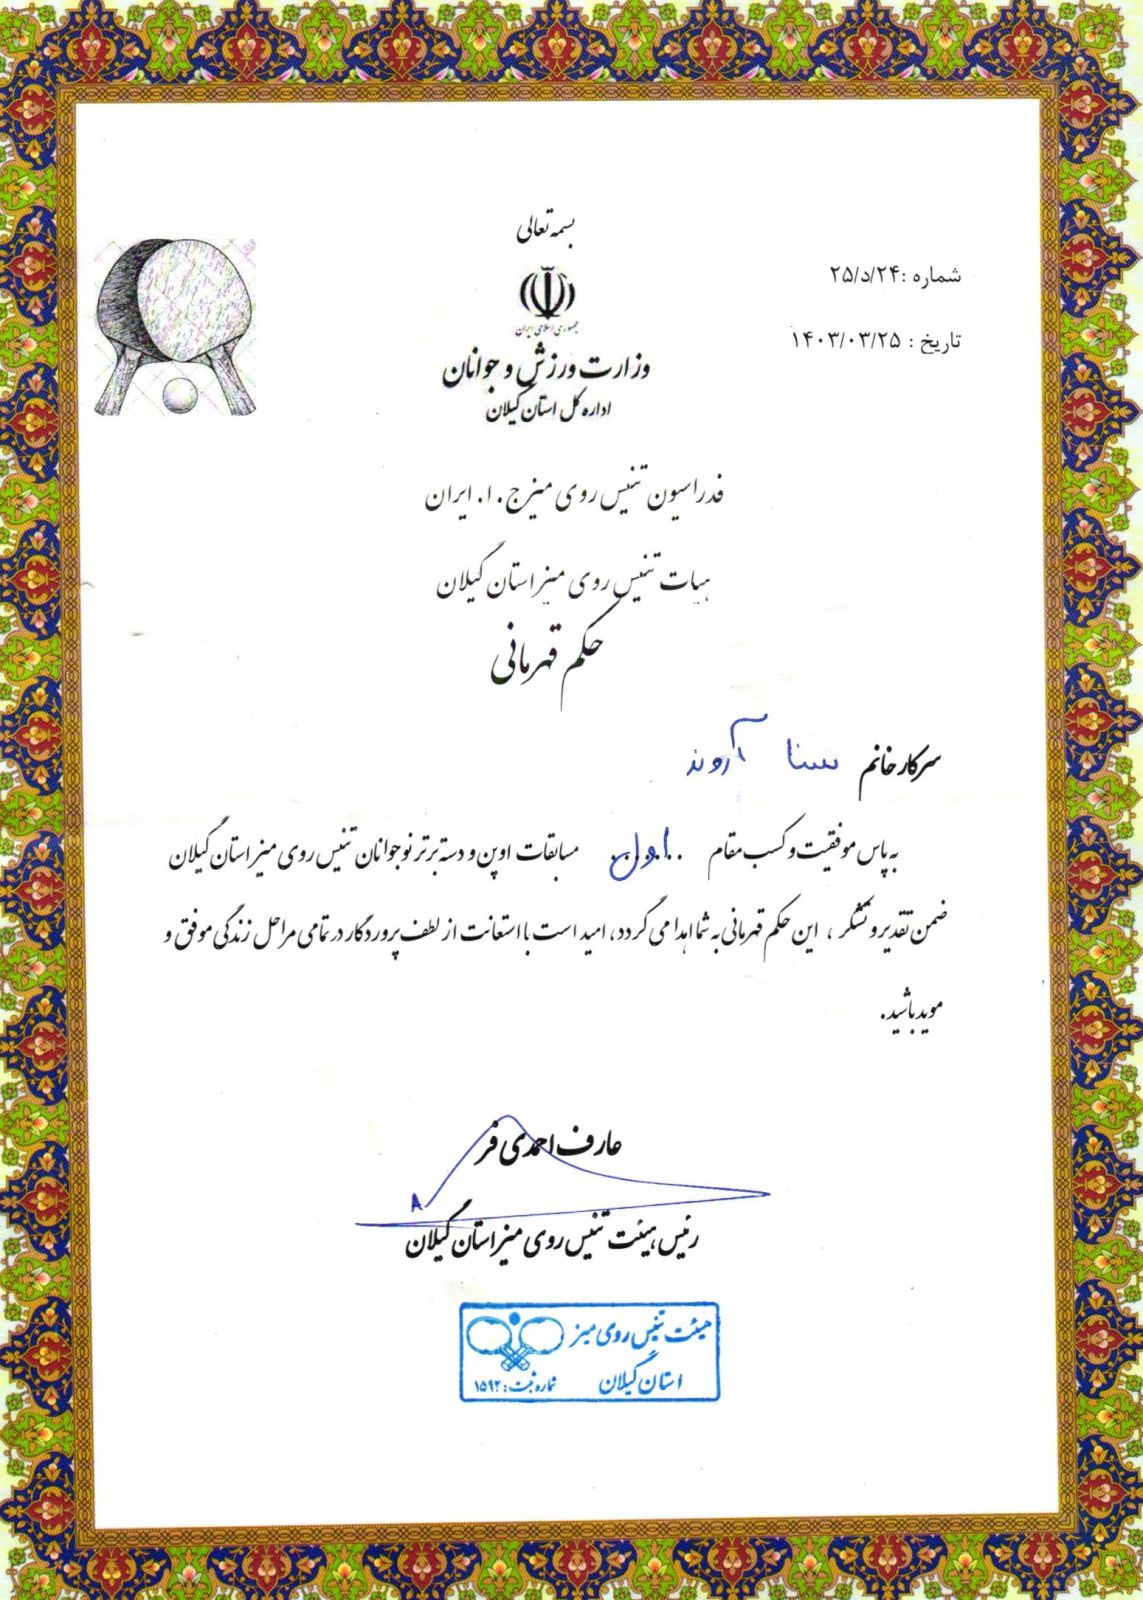 بسمه تعالی
شماره :۲۵/د/۲۴
جمهوری اسلامی ایران
تاریخ : ۱۴۰۳/۰۳/۲۵
وزارت ورزش و جوانان
اداره کل استان گیلان
فدراسیون تنیس روی میز ج.ا. ایران
هیات تنیس روی میز استان گیلان
حکم قهرمانی
سرکار خانم سنا آروند
به پاس موفقیت و کسب مقام اول مسابقات اوپن و دسته برتر نوجوانان تنیس روی میز استان گیلان
ضمن تقدیر و تشکر ، این حکم قهرمانی به شما اهدا می گردد، امید است با استعانت از لطف پروردگار در تمامی مراحل زندگی موفق و
موید باشید.
عارف احمدی فر
A
رئیس هیئت تنیس روی میز استان گیلان
هیئت تنیس روی میز
استان گیلان
شماره ثبت: ۱۵۹۲